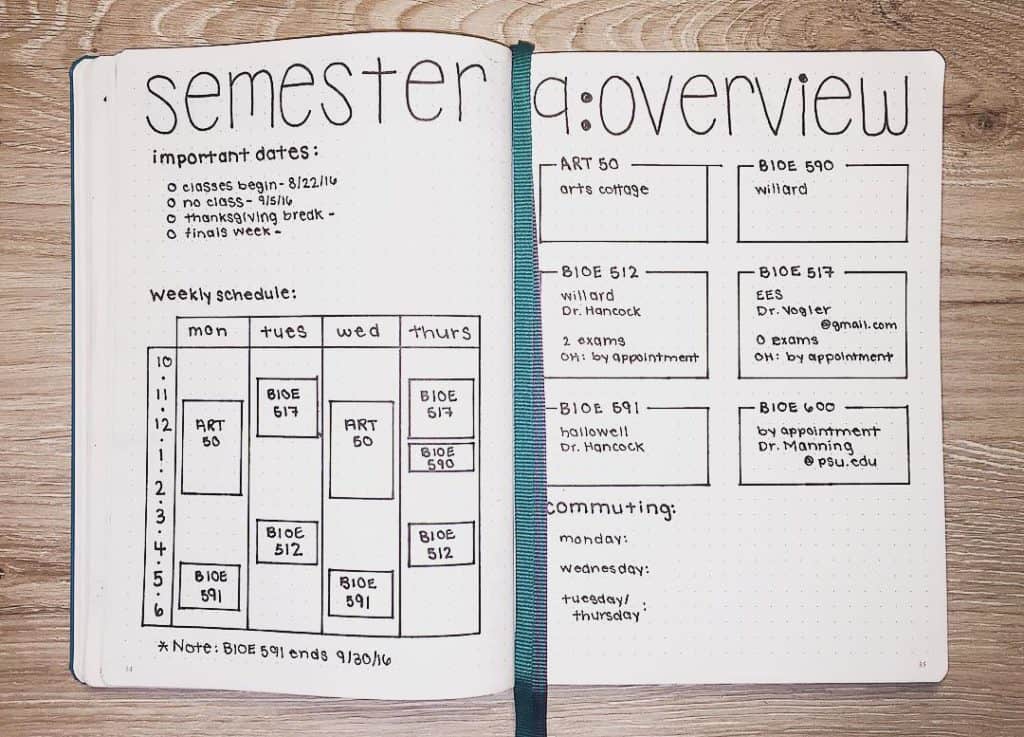 semester 9:overview
important dates:
o classes begin - 8/22/16
o no class - 9/5/16
o thanksgiving break -
o finals week -
weekly schedule:
mon tues wed thurs
10
11
12
1
2
3
4
5
6
ART
50
BIOE
591
BIOE
517
BIOE
512
ART
50
BIOE
591
BIOE
517
BIOE
590
BIOE
512
*Note: BIOE 591 ends 9/30/16
34
ART 50
arts cottage
BIOE 590
willard
BIOE 512
willard
Dr. Hancock
2 exams
OH: by appointment
BIOE 517
EES
Dr. Vogler
@gmail.com
0 exams
OH: by appointment
BIOE 591
hallowell
Dr. Hancock
BIOE 600
by appointment
Dr. Manning
@psu.edu
commuting:
monday:
wednesday:
tuesday/
thursday:
35